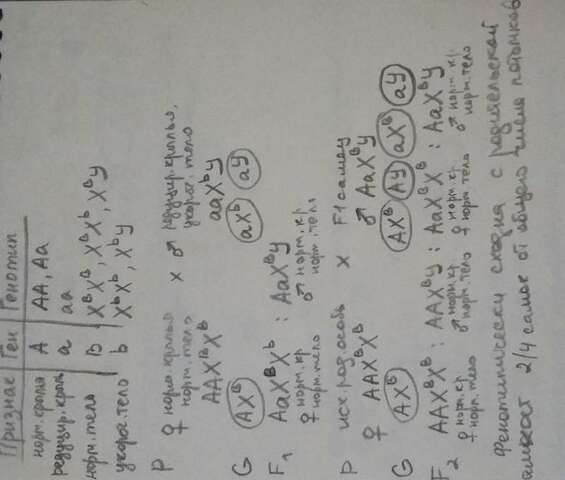 Признак Ген Генотип
норм.крылья A AA, Aa
редуцир.крыль a aa
норм.тело B XᴮXᴮ, XᴮXᵇ, XᴮY
укороч.тело b XᵇXᵇ, XᵇY
P ♀ норм.крылья x ♂ редуцир.крылья,
норм.тело укороч. тело
AAXᴮXᴮ aaXᵇY
G AXᴮ aXᵇ aY
F₁ AaXᴮXᵇ : AaXᴮY
♀ норм.кр ♂ норм.кр.
норм.тело норм.тело
P исх.род.особь x F1 самец
♀ AAXᴮXᴮ ♂ AaXᴮY
G AXᴮ AXᴮ AY aXᴮ aY
F₂ AAXᴮXᴮ : AAXᴮY : AaXᴮXᴮ : AaXᴮY
♀ норм.кр. ♂ норм.кр. ♀ норм.кр ♂ норм.кр.
норм.тело норм.тело норм тело норм.тело
Фенотипически сходна с родительской
2/4 самок от общего числа потомков